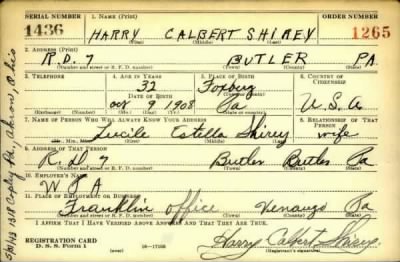 SERIAL NUMBER 1. NAME (Print) ORDER NUMBER
1436 HARRY CALBERT SHIREY 1265
(First) (Middle) (Last)
2. ADDRESS (Print)
R.D. 7 BUTLER PA.
(Number and street or R. F. D. number) (Town) (County) (State)
3. TELEPHONE 4. AGE IN YEARS 5. PLACE OF BIRTH 6. COUNTRY OF CITIZENSHIP
32 Foxburg
DATE OF BIRTH (Town or county)
Oct 9 1908 Pa U.S.A
(Mo.) (Day) (Yr.) (State or country)
7. NAME OF PERSON WHO WILL ALWAYS KNOW YOUR ADDRESS 8. RELATIONSHIP OF THAT PERSON
Lucile Estella Shirey wife
(First) (Middle) (Last)
9. ADDRESS OF THAT PERSON
R.D 7 Butler Butler Pa
(Number and street or R. F. D. number) (Town) (County) (State)
10. EMPLOYER'S NAME
W P A
11. PLACE OF EMPLOYMENT OR BUSINESS
Franklin office Venango Pa
(Number and street or R. F. D. number) (Town) (County) (State)
I AFFIRM THAT I HAVE VERIFIED ABOVE ANSWERS AND THAT THEY ARE TRUE.
REGISTRATION CARD
D. S. S. Form 1 16—17105 Harry Calbert Shirey
(Registrant's signature)
Akron, Ohio